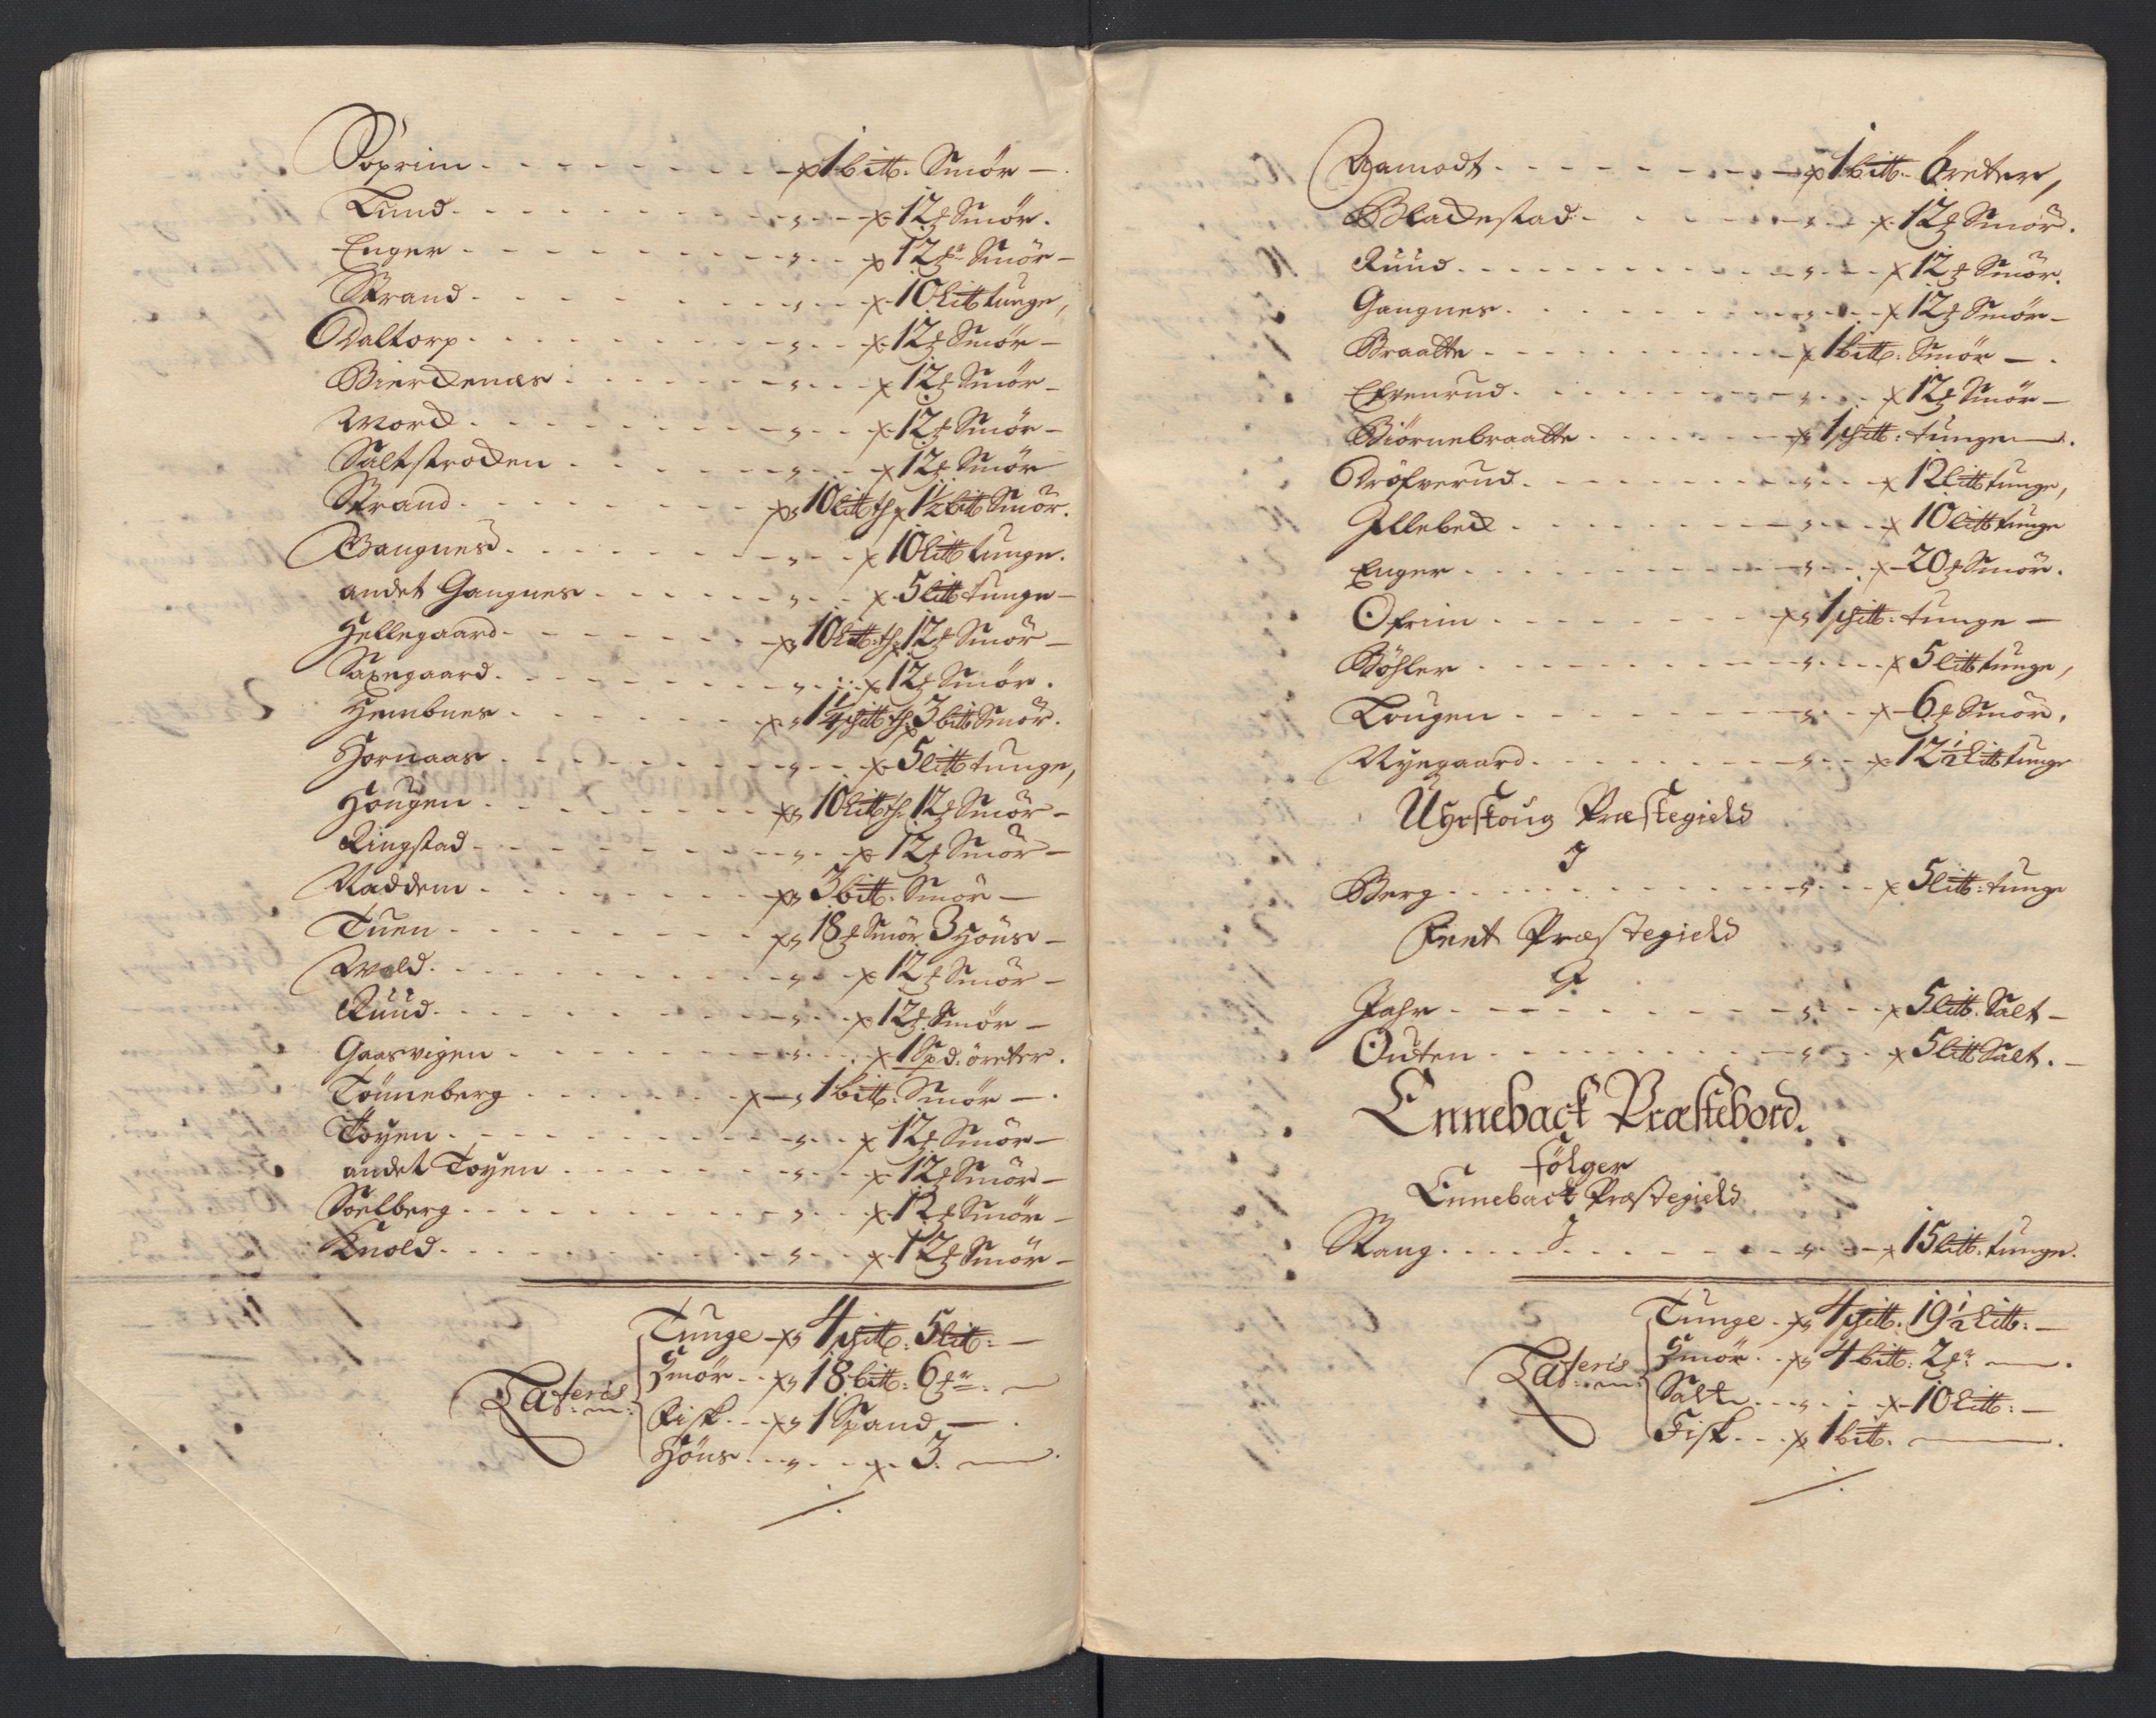 Soprim - - - 1 bitt. Smör -
Lund - - - 12 ℔ Smör.
Enger - - - 12 ℔ Smör -
Strand - - - 10 Litt tunge,
Daltorp - - - 12 ℔ Smör -
Bierckenæs - - - 12 ℔ Smör -
Morck - - - 12 ℔ Smör -
Saltstrocken - - - 12 ℔ Smör
Strand - - - 10 litt th 1½ bitt Smör.
Gangnes - - - 10 Litt tunge.
andet Gangnes - - - 5 litt tunge -
Hellegaard - - - 10 Litt: th: 12 ℔ Smör -
Saxegaard - - - 12 ℔ Smör.
Hembnes - - - 1¼ schitt th: 3 bitt Smör.
Hornaas - - - 5 litt tunge,
Hougen - - - 10 Litt th: 12 ℔ Smör -
Ringstad - - - 12 ℔ Smör -
Naddem - - - 3 bitt. Smör -
Tuen - - - 18 ℔ Smör 3 Höns -
Wold - - - 12 ℔ Smör -
Ruud - - - 12 ℔ Smör -
Gaasvigen - - - 1 Spd: öreter.
Tönneberg - - - 1 bitt. Smör -
Töyen - - - 12 ℔ Smör -
andet Töyen - - - 12 ℔ Smör -
Soelberg - - - 12 ℔ Smör -
Knold - - - 12 ℔ Smör -
Lateris
Tunge 4 schitt: 5 litt: -
Smör - - 18 bitt: 6 ℔r. -
Fisk - - 1 Spand -
Höns - - - 3. -
- - - 1 bitt. Öreter,
Blackestad - - - 12 ℔ Smör.
Ruud - - - 12 ℔ Smör.
Gangnes - - - 12 ℔ Smör -
Braatte - - - 1 bitt: Smör -
Efvenrud - - - 12 ℔ Smör -
Biörnebraatte - - - 1 schitt: tunge -
Dröfverud - - - 12 litt tunge,
Illebeck - - - 10 litt tunge
Enger - - - 20 ℔ Smör.
Ofrim - - - 1 schitt: tunge -
Böhler - - - 5 litt tunge,
Lougen - - - 6 ℔ Smör.
Nyegaard - - - 12½ Litt tunge
Uhrskoug Præstegield
I
Berg - - - 5 litt: tunge
Feet Præstegield
I
Jahr - - - 5 litt. Salt -
Outen - - - 5 litt Salt. -
Enneback Præstebord.
følger
Enneback Præstegield
I
Stang - - - 15 litt. tunge.
Lateris
Tunge 4 schitt. 19½ Litt: -
Smör - - 4 bitt: 2 ℔r -
Salt - - - 10 Litt: -
Fisk - - - 1 bitt. -